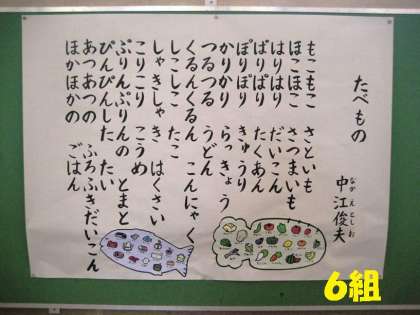 たべもの
中江俊夫
なかえとしお
もこもこ さといも
ほこほこ さつまいも
はりはり だいこん
ぱりぱり たくあん
ぽりぽり きゅうり
かりかり らっきょう
つるつる うどん
くるんくるん こんにゃく
しこしこ たこ
しゃきしゃき はくさい
こりこり こうめ
ぷりんぷりんの とまと
ぴんぴんした たい
あつあつの ふろふきだいこん
ほかほかの ごはん
6組